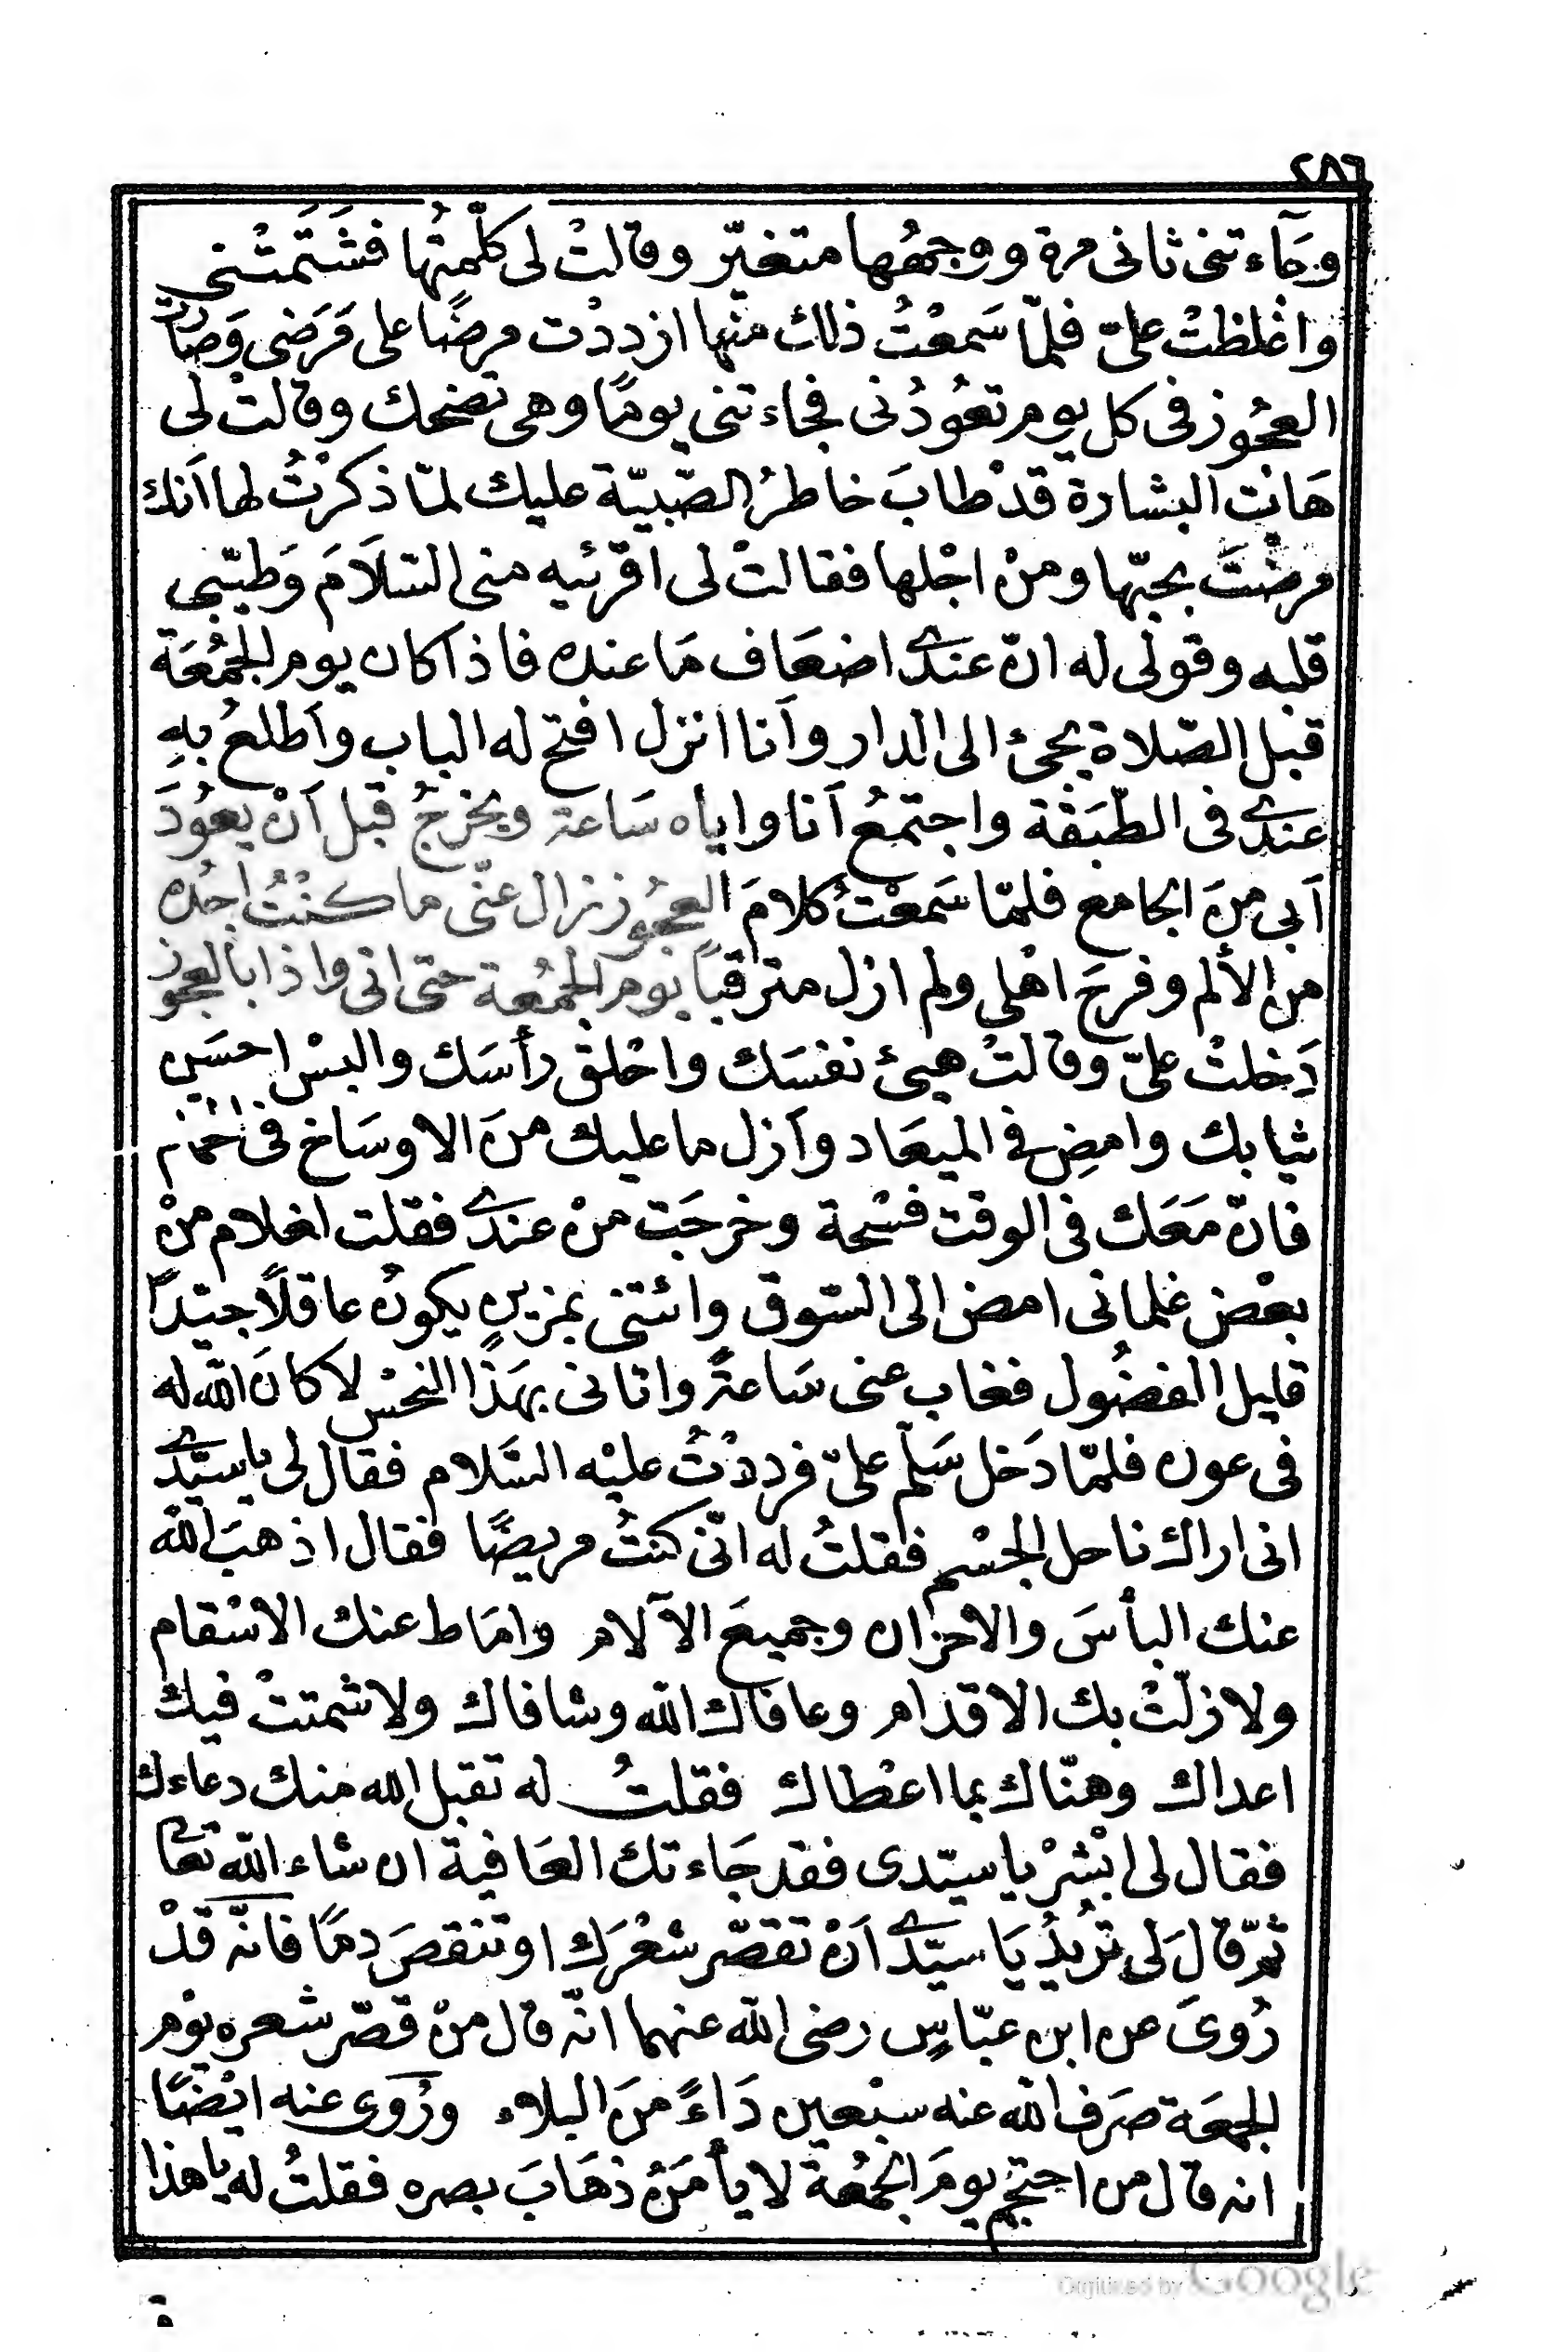 ٢٨٦
وجَآءتنى ثانى مرة ووجهُها متغيّر وقالتْ لى كلّمتُها فشَتَمَتْنى
واغلظتْ علىّ فلمّا سَمعْتُ ذلك منها ازددْت مرضًا على مَرَضى وَصَارت
العجُوز فى كل يوم تعُودُنى فجاءتنى يومًا وهى تضحك وقالتْ لى
هَات البشارة قدْ طابَ خاطرُ الصّبيّة عليك لمّا ذكرْتُ لها اَنك
مرضْتَ بحبّها ومنْ اجْلها فقالتْ لى اقرئيه منى السّلاَمَ وَطيّبى
قلبه وقولى له انّ عندى اضعَاف مَا عنده فاذا كان يوم الجُمُعَة
قبل الصّلاة يجئ الى الدار وآنا انزل افتح له الباب واَطلعُ بِهِ
عندى فى الطّبَقْة واجتمعُ آنا واياه سَاعة ويخرجُ قبل اَنْ يعُودَ
اَبى منَ الجامع فلمّا سَمعْتُ كلامَ العجُوز زال عنّى ما كنْتُ اجدُه
من الألم وفرحَ اهْلى ولم ازل مترقباً يوم الجُمُعة حتى اتى واذا بالعجوز
دَخلتْ علىّ وقالتْ هيئ نفسَك واحْلقْ رأسَك والبسْ احسَن
ثيابك وامضِ فى الميعَاد وآزل ما عليك منَ الاوسَاخ فى الحمّام
فانّ مَعَك فى الوقت فسْحة وخرجَت منْ عندى فقلت لغلام منْ
بعْض غلمانى امض الى السّوق وائتنى بمزينٍ يكونُ عاقلاً جيّداً
قليل الفضُول فغاب عنى سَاعةً واتانى بهَذا النحْس لا كانَ الله له
فى عون فلمّا دَخل سَلّم علىّ فرددْتُ عليْه السَّلام فقال لى يا سيّدى
انى اراك ناحل الجسْم فقلتُ له انّى كنتُ مريضًا فقال اذهبَ الله
عنك البأسَ والاحزان وجميعَ الآلام وامَاط عنك الاسْقام
ولا زلّتْ بك الاقدام وعافاك الله وشافاك ولا شمتتْ فيك
اعداك وهنّاك بما اعْطاك فقلتُ له تقبل الله منك دعاءك
فقال لى ابْشِرْ يا سيّدى فقد جَاءتك العَافية ان شاء الله تعَا
ثمّ قالَ لى تُريدُ يَا سيّدى اَنْ تقصّر شعْرَك او تنقصَ دمًا فانّه قدْ
رُوىَ عن ابن عبّاسٍ رضى الله عنهما انّه قال منْ قصّر شعره يوْم
الجمعَة صَرَف الله عنه سبْعين دَاءً منَ البلاء ورُوى عنه ايْضًا
انه قال من احتجم يومَ الجُمُعة لا يأمَنُ ذهَابَ بصره فقلتُ له يا هذا
Digitized by Google